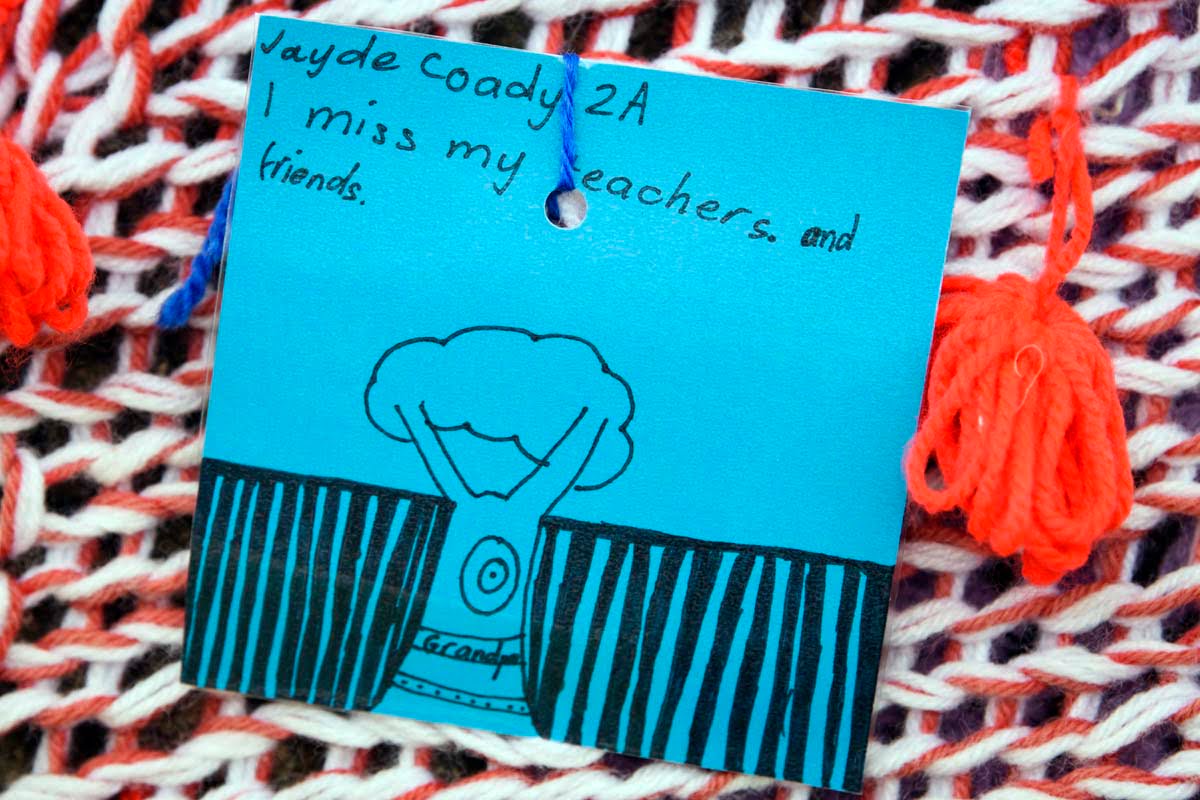 Jayde Coady 2A
I miss my teachers. and
friends.
Grandpa